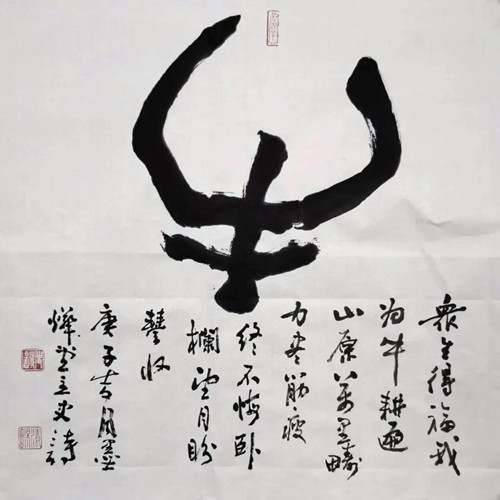 牛
眾生得福我
為牛耕遍
山原萬里疇
力盡筋疲
終不悔卧
欄望月盼
豐收
庚子吉月墨
燁堂主史詩